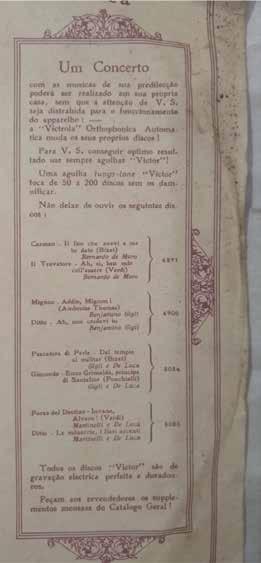 Um Concerto
com as musicas de sua predilecção
poderá ser realizado em sua propria
casa, sem que a attenção de V. S.
seja distrahida para o funccionamento
do apparelho: —
a "Victrola" Orthophonica Automa-
tica muda os seus proprios discos!
Para V. S. conseguir optimo resul-
tado use sempre agulhas "Victor"!
Uma agulha tungs-tone "Victor"
toca de 50 a 200 discos sem os dam-
nificar.
Não deixe de ouvir os seguintes dis-
cos:
Carmen - Il fior che avevi a me
tu dato (Bizet)
Bernardo de Muro
Il Trovatore - Ah, si, ben mio
coll'essere (Verdi)
Bernardo de Muro
Mignon - Addio, Mignon!
(Ambroise Thomas)
Benjamino Gigli
Ditto - Ah, non credevi tu
Benjamino Gigli
6906
Pescatore di Perle - Del tempio
al limitar (Bizet)
Gigli e De Luca
Gioconda - Enzo Grimaldo, principe
di Santafior (Ponchielli)
Gigli e De Luca
8084
Forza del Destino - Invano,
Alvaro! (Verdi)
Martinelli e De Luca
Ditto - Le minaccie, i fieri accenti
Martinelli e De Luca
Todos os discos "Victor" são de
gravação electrica perfeita e duradou-
ros.
Peçam aos revendedores os supple-
mentos mensaes do Catalogo Geral!